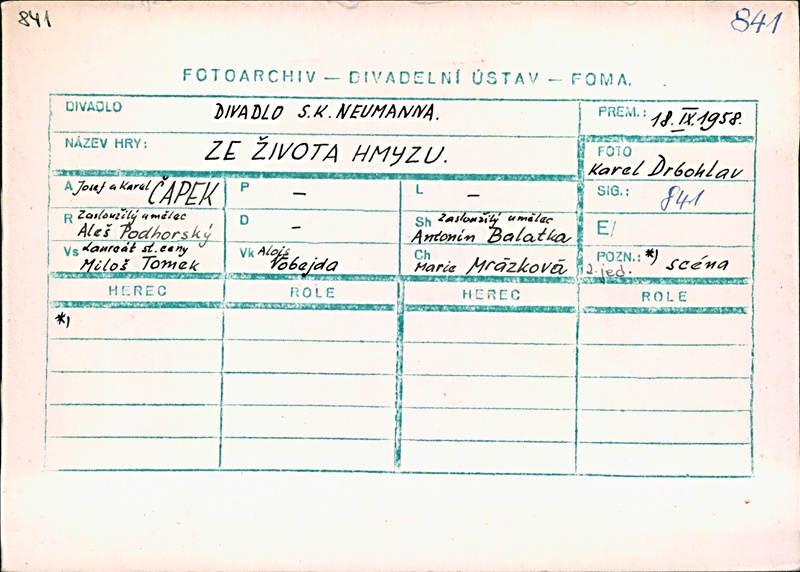 841
841
FOTOARCHIV — DIVADELNÍ ÚSTAV — FOMA.
DIVADLO DIVADLO S.K. NEUMANNA. PREM.: 18.IX.1958.
NÁZEV HRY: ZE ŽIVOTA HMYZU. FOTO Karel Drbohlav
A Josef a Karel ČAPEK P — L — SIG.: 841
R Zasloužilý umělec Aleš Podhorský D — Sh Zasloužilý umělec Antonín Balatka E/
Vs Laureát st. ceny Miloš Tomek Vk Alois Vobejda Ch Marie Mrázková POZN.: *) scéna
2. jed.
HEREC ROLE HEREC ROLE
*)